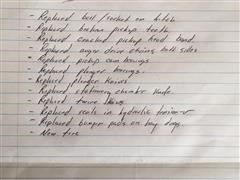 - Replaced ball [socket] on hitch
- Replaced broken pickup teeth
- Replaced cracked pickup head band.
- Replaced auger drive chains both sides
- Replaced pickup cam bearings
- Replaced plunger bearings.
- Replaced plunger knives
- Replaced stationary chamber knife.
- Replaced twine knives
- Replaced seals in hydraulic tensioner
- Replaced bumper pads on hay dogs.
- New tire